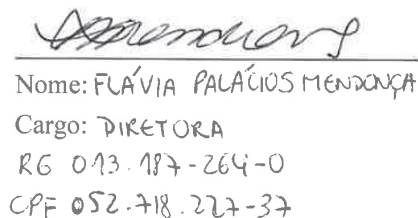 Nome: FLÁVIA PALÁCIOS MENDONÇA
Cargo: DIRETORA
RG 013.187-264-0
CPF 052.718.227-37